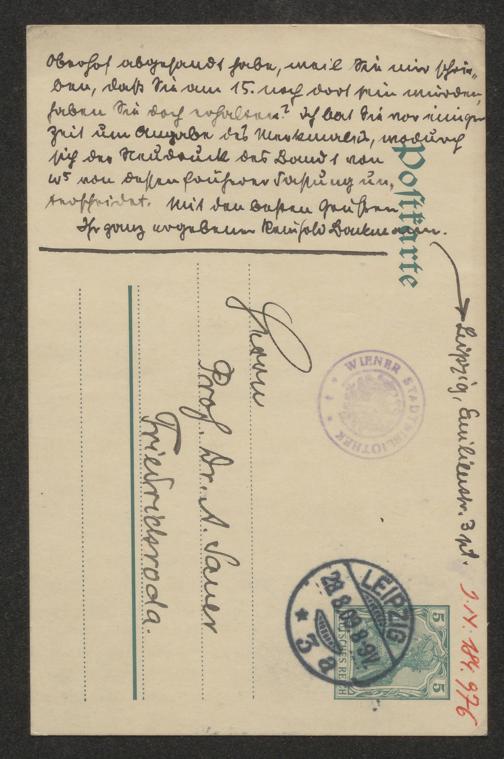 Oberhof abgesandt habe, weil Sie mir schrie-
ben, daß Sie am 15. noch dort sein würden,
haben Sie doch erhalten? Ich bat Sie vor einiger
Zeit um Angabe des Merkmals, wodurch
sich der Neudruck des Bands 1 von
W⁵ von dessen früherer Fassung un-
terscheidet. Mit den besten Grüßen
Ihr ganz ergebener Reinhold Backmann.
Leipzig, Emilienstr. 3 pt.
Postkarte
Herrn
Prof. Dr. A. Sauer
Friedrichsroda.
WIENER STADTBIBLIOTHEK
LEIPZIG
28.8.09.8-9V.
* 3 a
DEUTSCHES REICH
5 5
J.N. 184.976